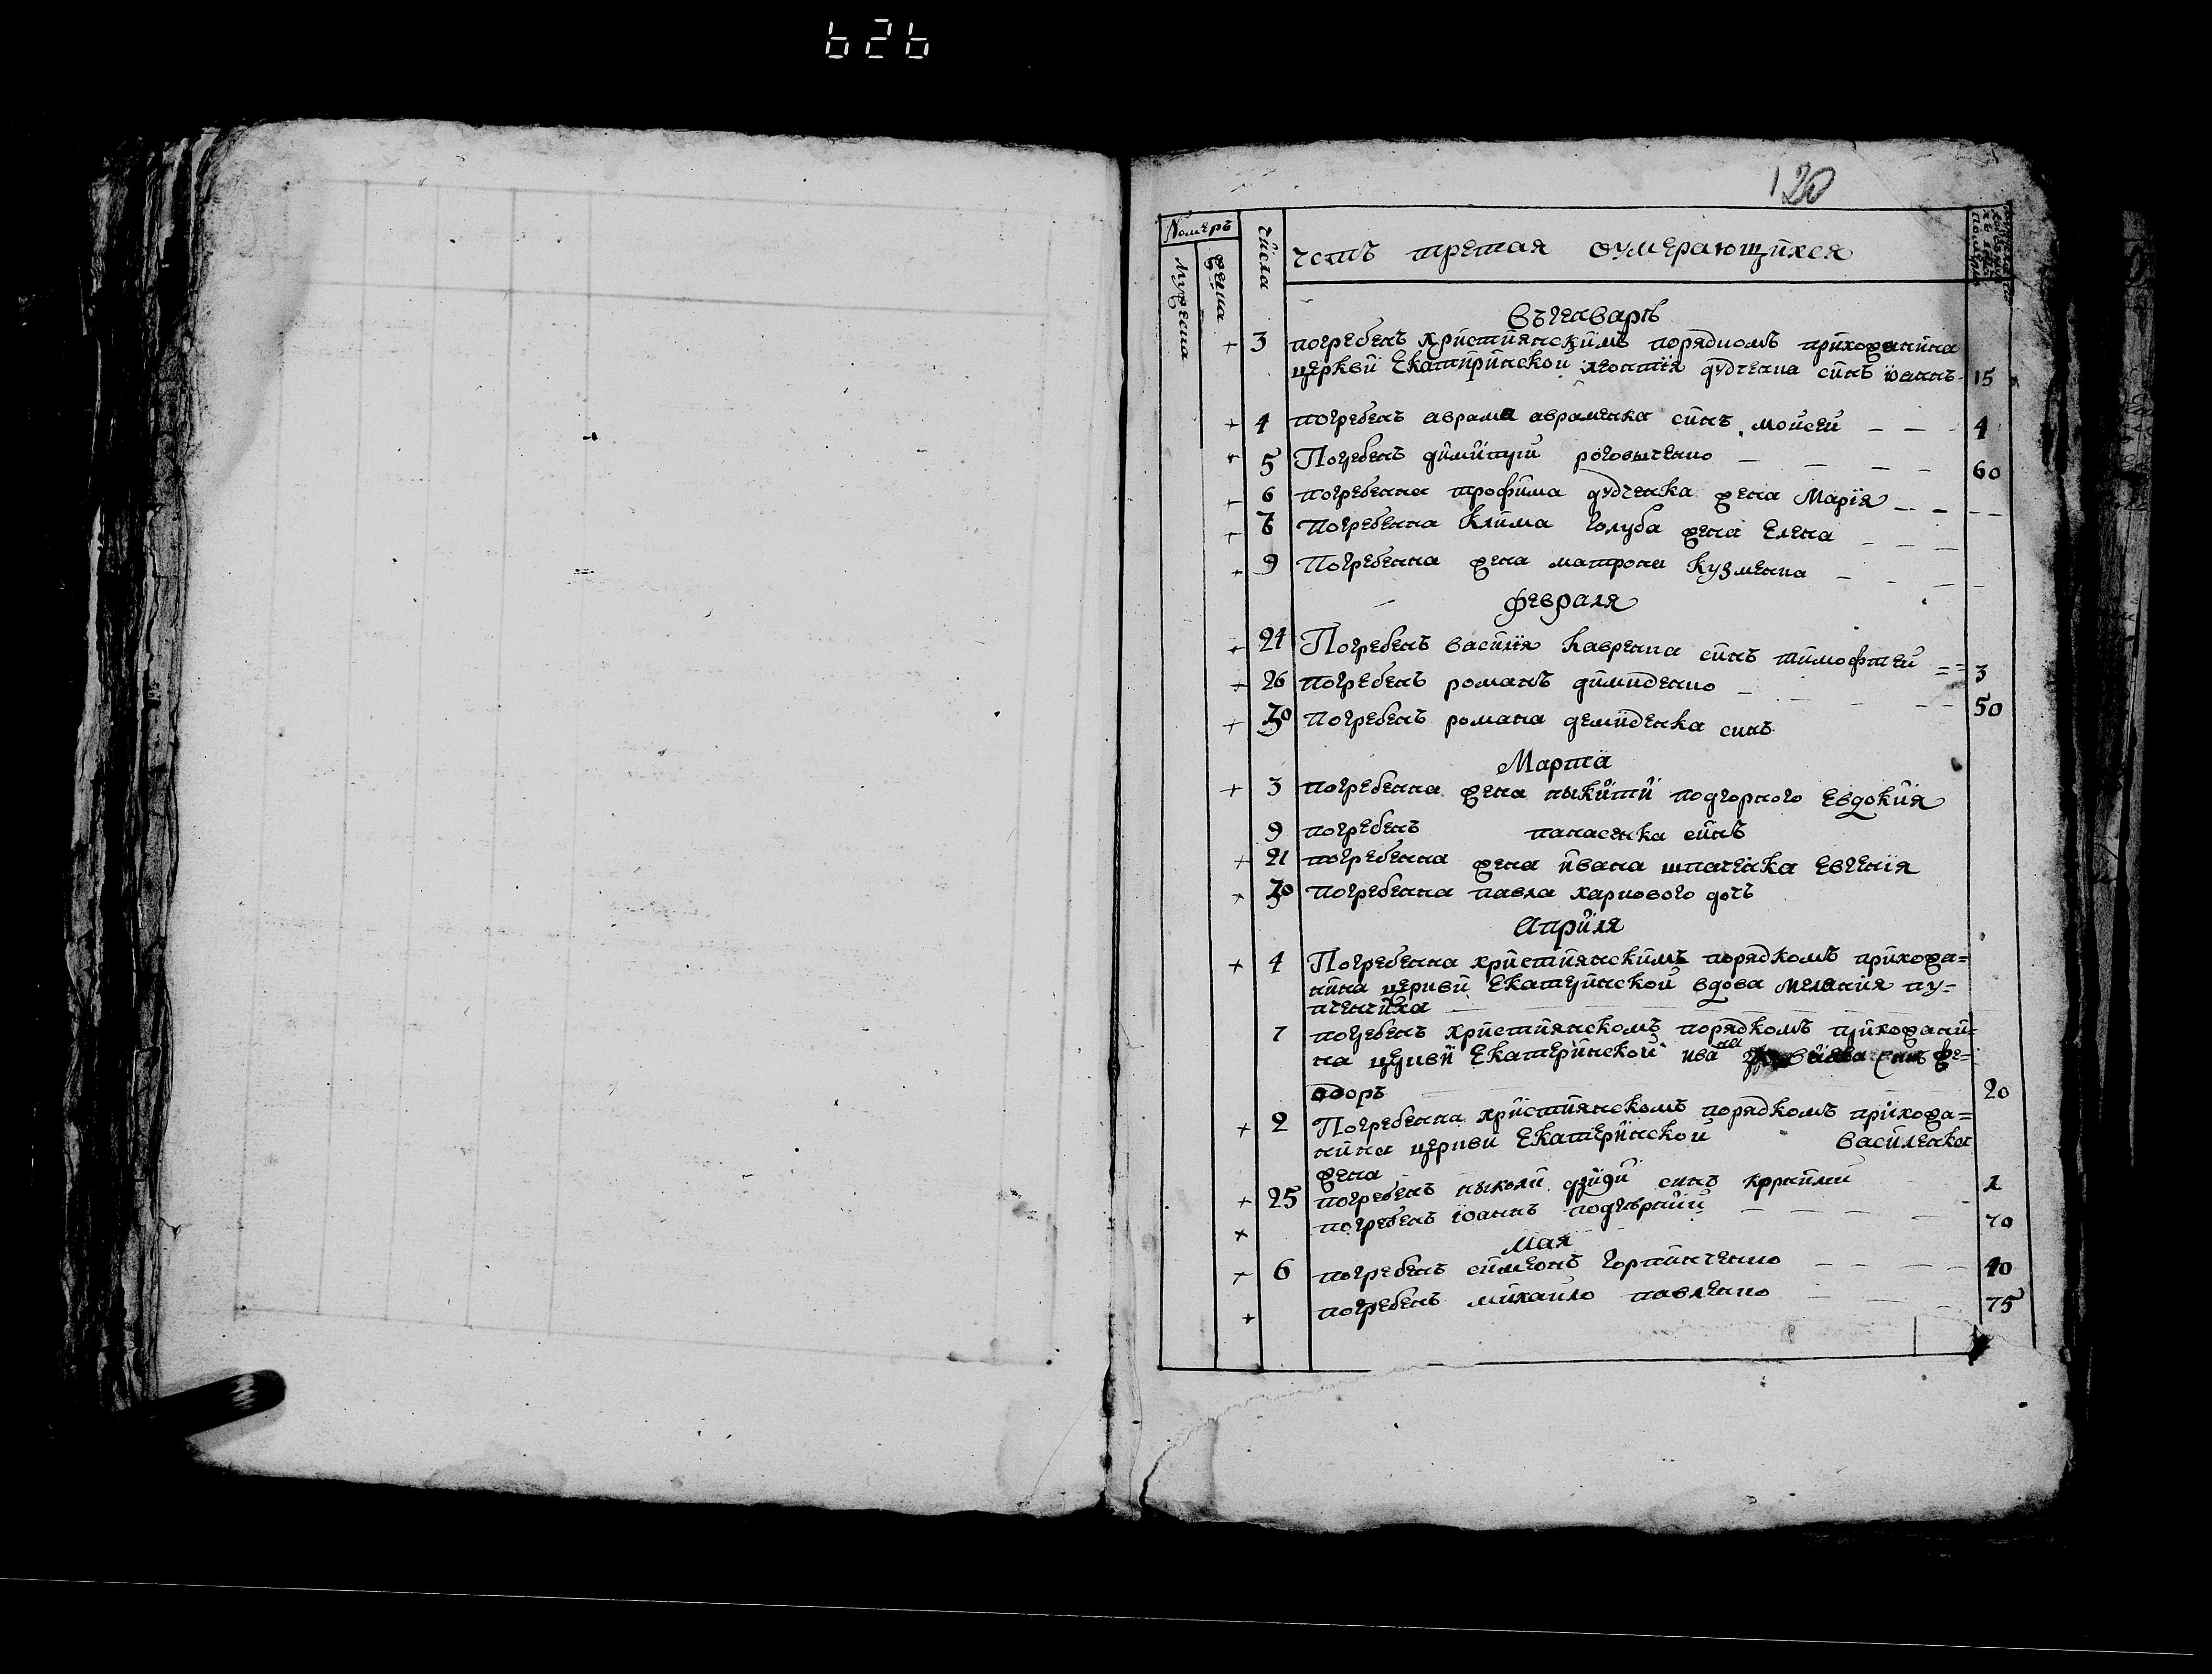 626
120
Номеръ
мужеска
женска
числа
честь третая оумерающихся
въ генваръ
3 погребенъ християнскимъ порядкомъ прихожанина
церкви Екатиринской леонтїя дудченка синъ їоаннъ 15
4 погребенъ аврама авраменка синъ моисей 4
5 Погребенъ димитрїй роговыченко 60
6 погребенна трофима дудченка жена Марїя
7 Погребенна Клима голуба жена Елена
9 Погребенна жена матрона Кузменка
февраля
24 Погребенъ василїя Кавренка синъ тимофтей 3
26 погребенъ романъ димиденко 50
30 Погребенъ романа демиденка синъ
Марта
3 погребенна жена ныкити подгорного Евдокия
9 погребенъ панасенка синъ
21 погребенна жена ивана шпаченка Евгения
30 погребенна павла харкового дочь
Априля
4 Погребенна християнскимъ порядкомъ прихожа=
нина церкви Екатеринской вдова мелания пу=
7 погребенъ християнскомъ порядкомъ прихожани
на церкви Екатеринской ивана синъ фе=
одоръ 20
2 Погребенна християнскомъ порядкомъ прихожа=
нина церкви Екатеринской василенка
жена
25 погребенъ ныколи синъ 1
погребенъ їоаннъ 70
мая
6 погребенъ симеонъ горпинченко 40
погребенъ михаило павленко 75